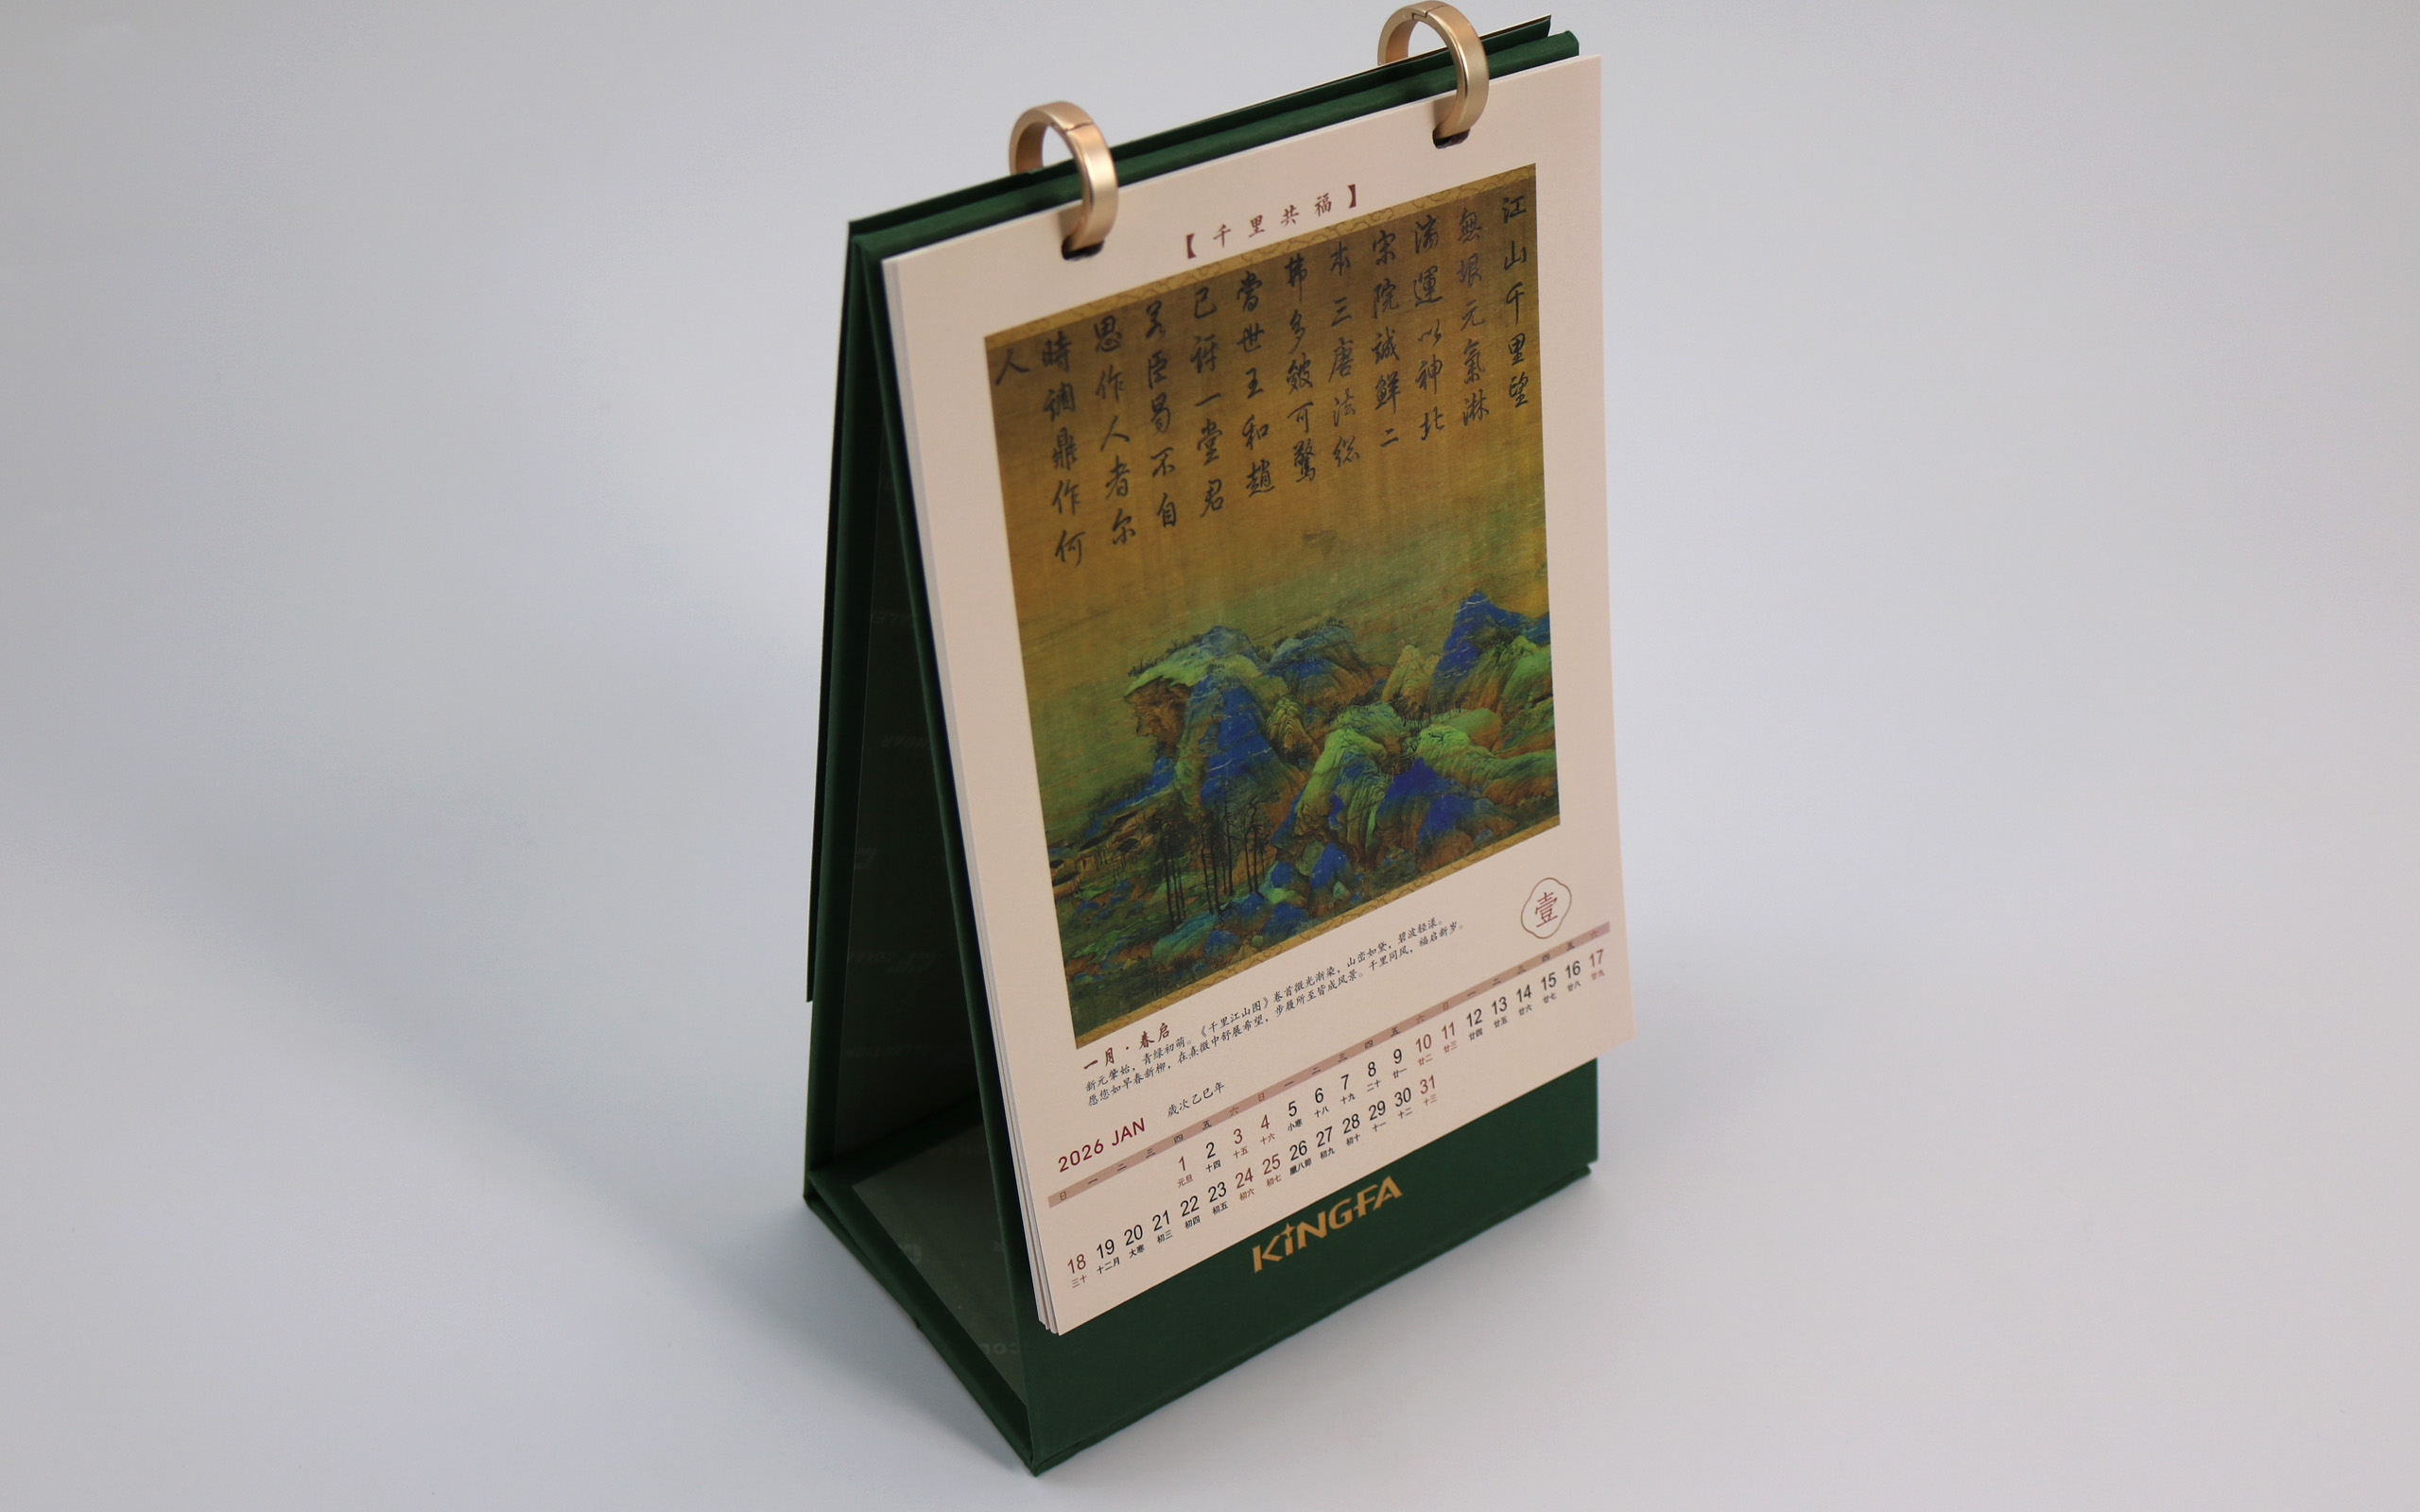 【千里共福】
江山千里望
無垠元氣淋
漓運以神北
宋院誠鮮二
本三唐法総
弗多皴可驚
當世王和趙
已訝一堂君
若臣曷不自
思作人者尔
時調鼎作何
人
壹
一月·春启
新元肇始，青绿初萌。《千里江山图》卷首微光渐染，山峦如黛，碧波轻漾。
愿您如早春新柳，在熹微中舒展希望，步履所至皆成风景。千里同风，福启新岁。
2026 JAN 歲次乙巳年
日 一 二 三 四 五 六 日 一 二 三 四 五 六 日 一 二 三 四 五 六
1 2 3 4 5 6 7 8 9 10 11 12 13 14 15 16 17
元旦 十四 十五 十六 小寒 十八 十九 二十 廿一 廿二 廿三 廿四 廿五 廿六 廿七 廿八 廿九
18 19 20 21 22 23 24 25 26 27 28 29 30 31
三十 十二月 大寒 初三 初四 初五 初六 初七 臘八節 初九 初十 十一 十二 十三
KINGFA